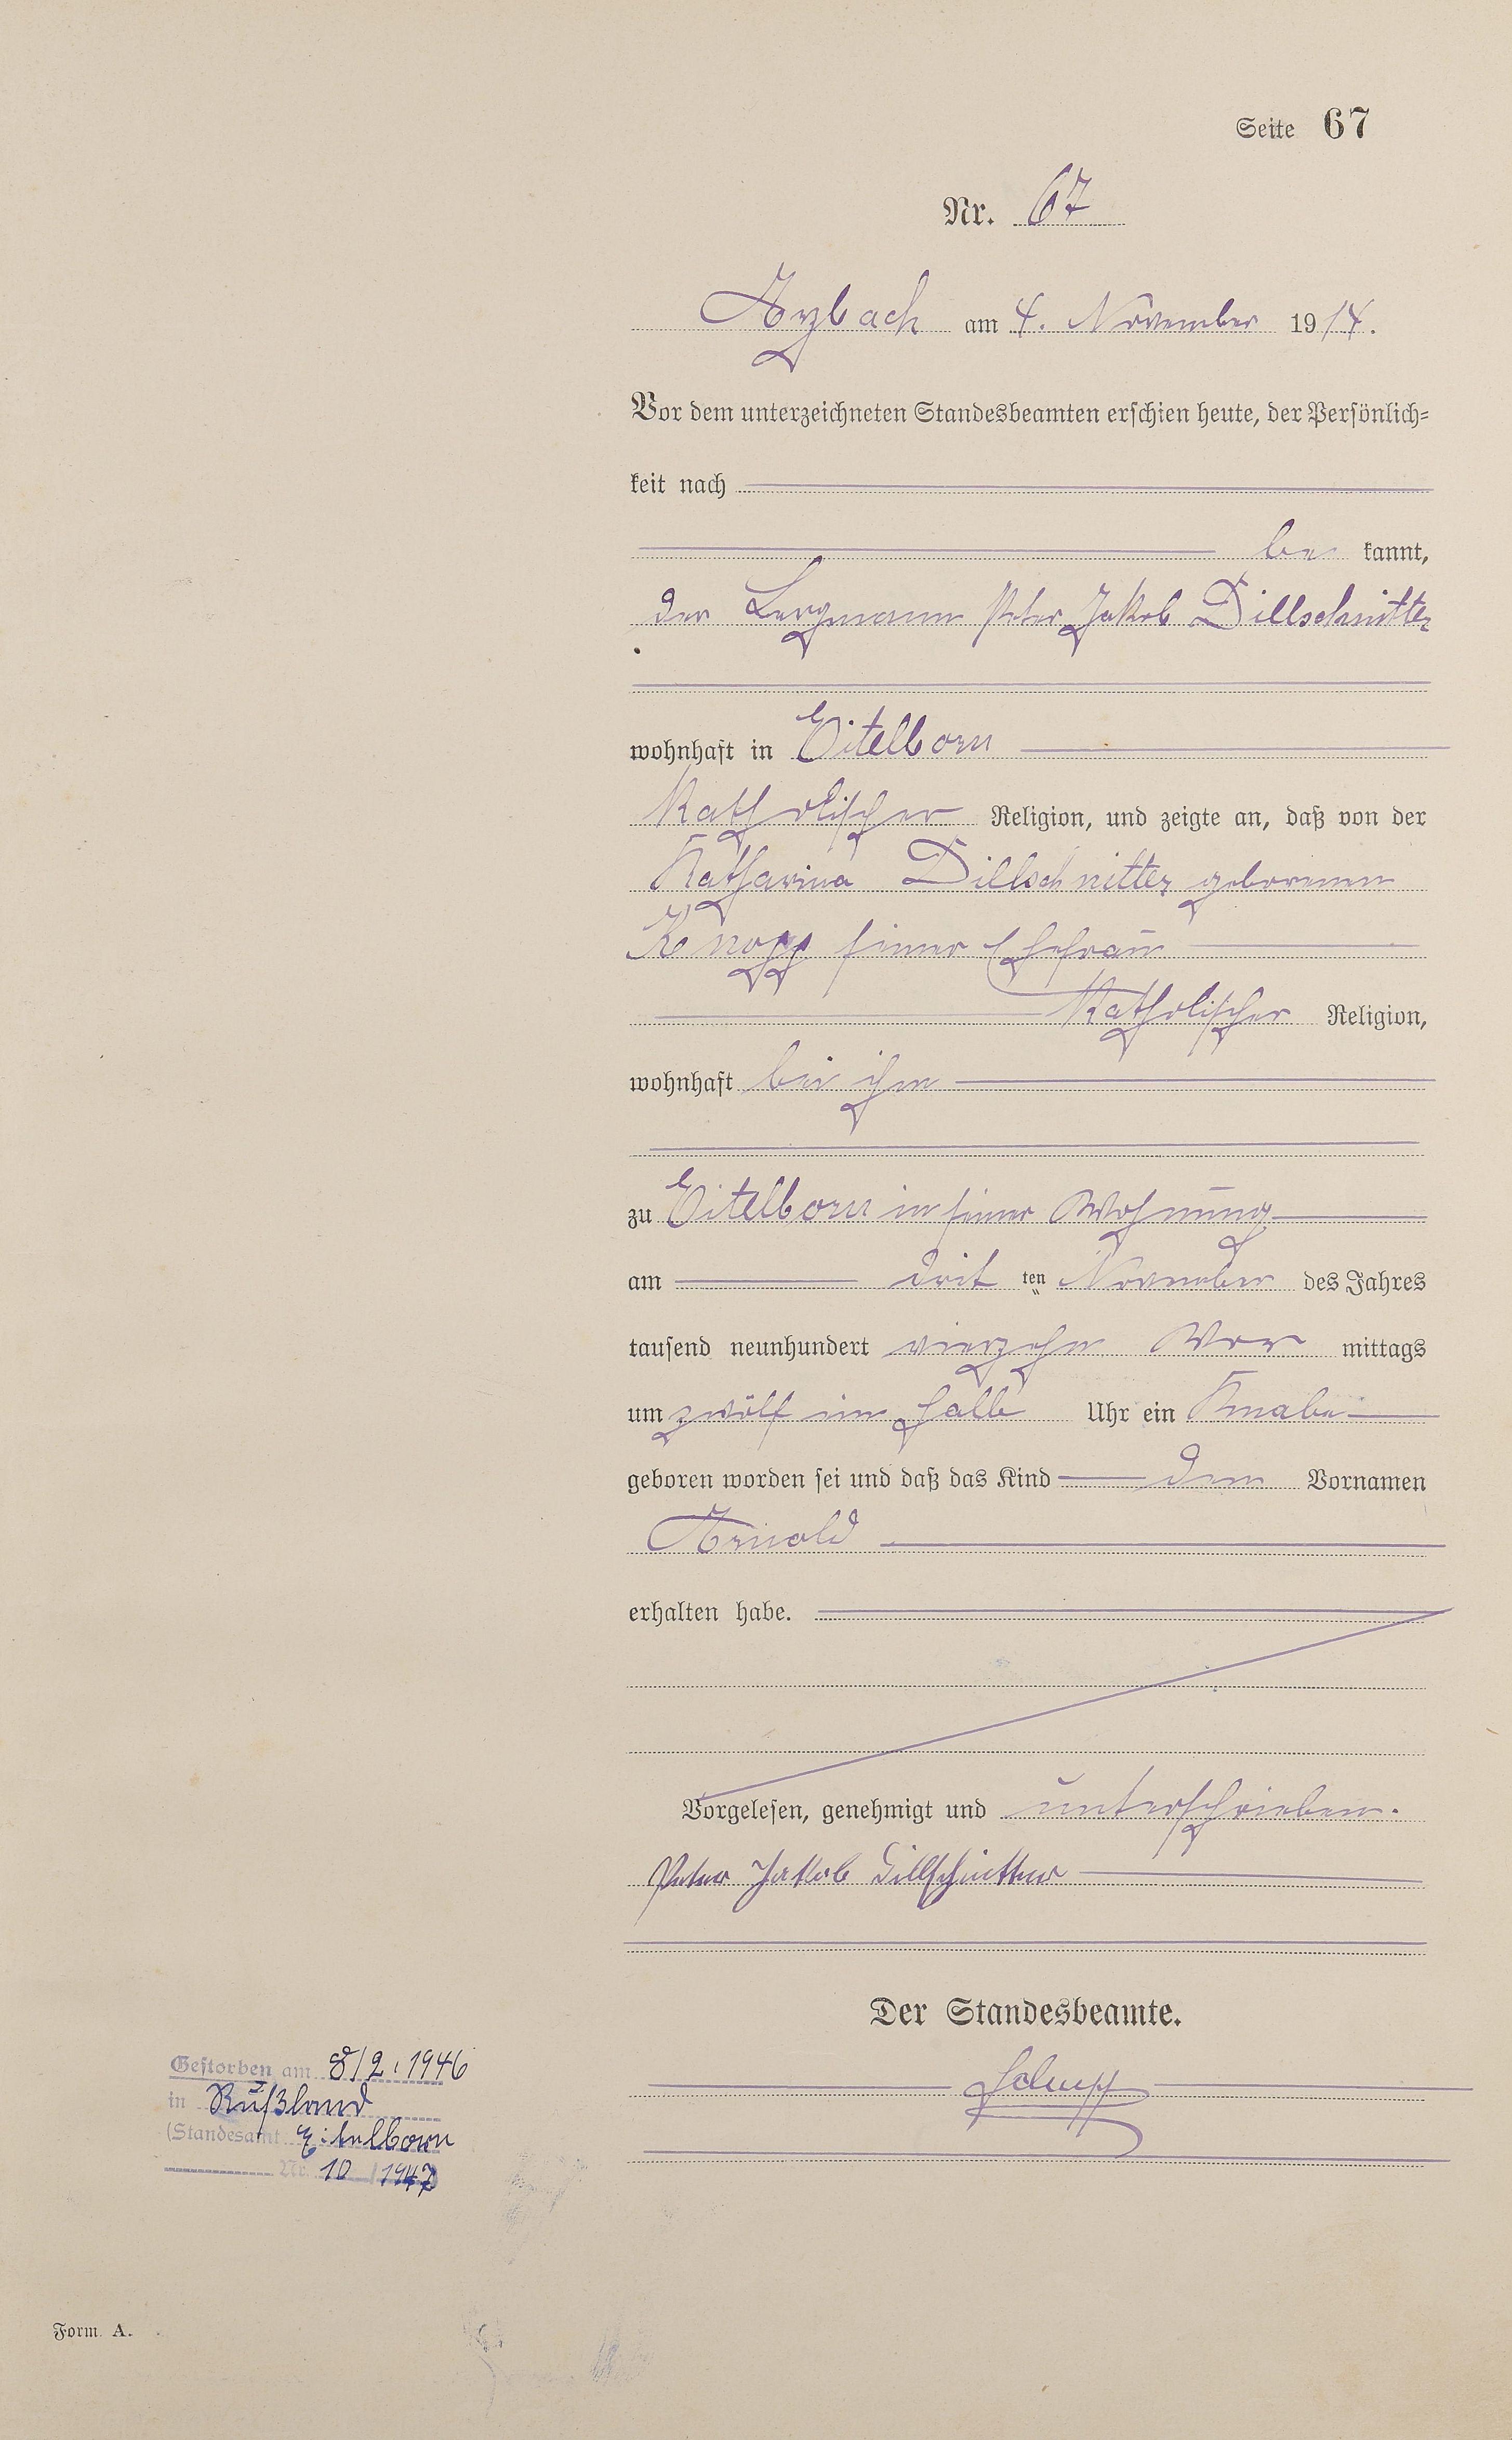 Seite 67
Nr. 67
Arzbach am 4. November 1914.
Vor dem unterzeichneten Standesbeamten erschien heute, der Persönlich=
keit nach
be kannt,
der Bergmann Peter Jakob Dillschnitter
wohnhaft in Eitelborn
katholischer Religion, und zeigte an, daß von der
Katharina Dillschnitter geborenen
Knopp seiner Ehefrau
katholischer Religion,
wohnhaft bei ihm
zu Eitelborn in seiner Wohnung
am drit ten November des Jahres
tausend neunhundert vierzehn Vor mittags
um zwölf ein halb Uhr ein Knabe
geboren worden sei und daß das Kind den Vornamen
Arnold
erhalten habe.
Vorgelesen, genehmigt und unterschrieben.
Peter Jakob Dillschnitter
Der Standesbeamte.
Schupp
Gestorben am 8/2.1946
in Rußland
(Standesamt Eitelborn
Nr. 10 / 1947
Form. A.